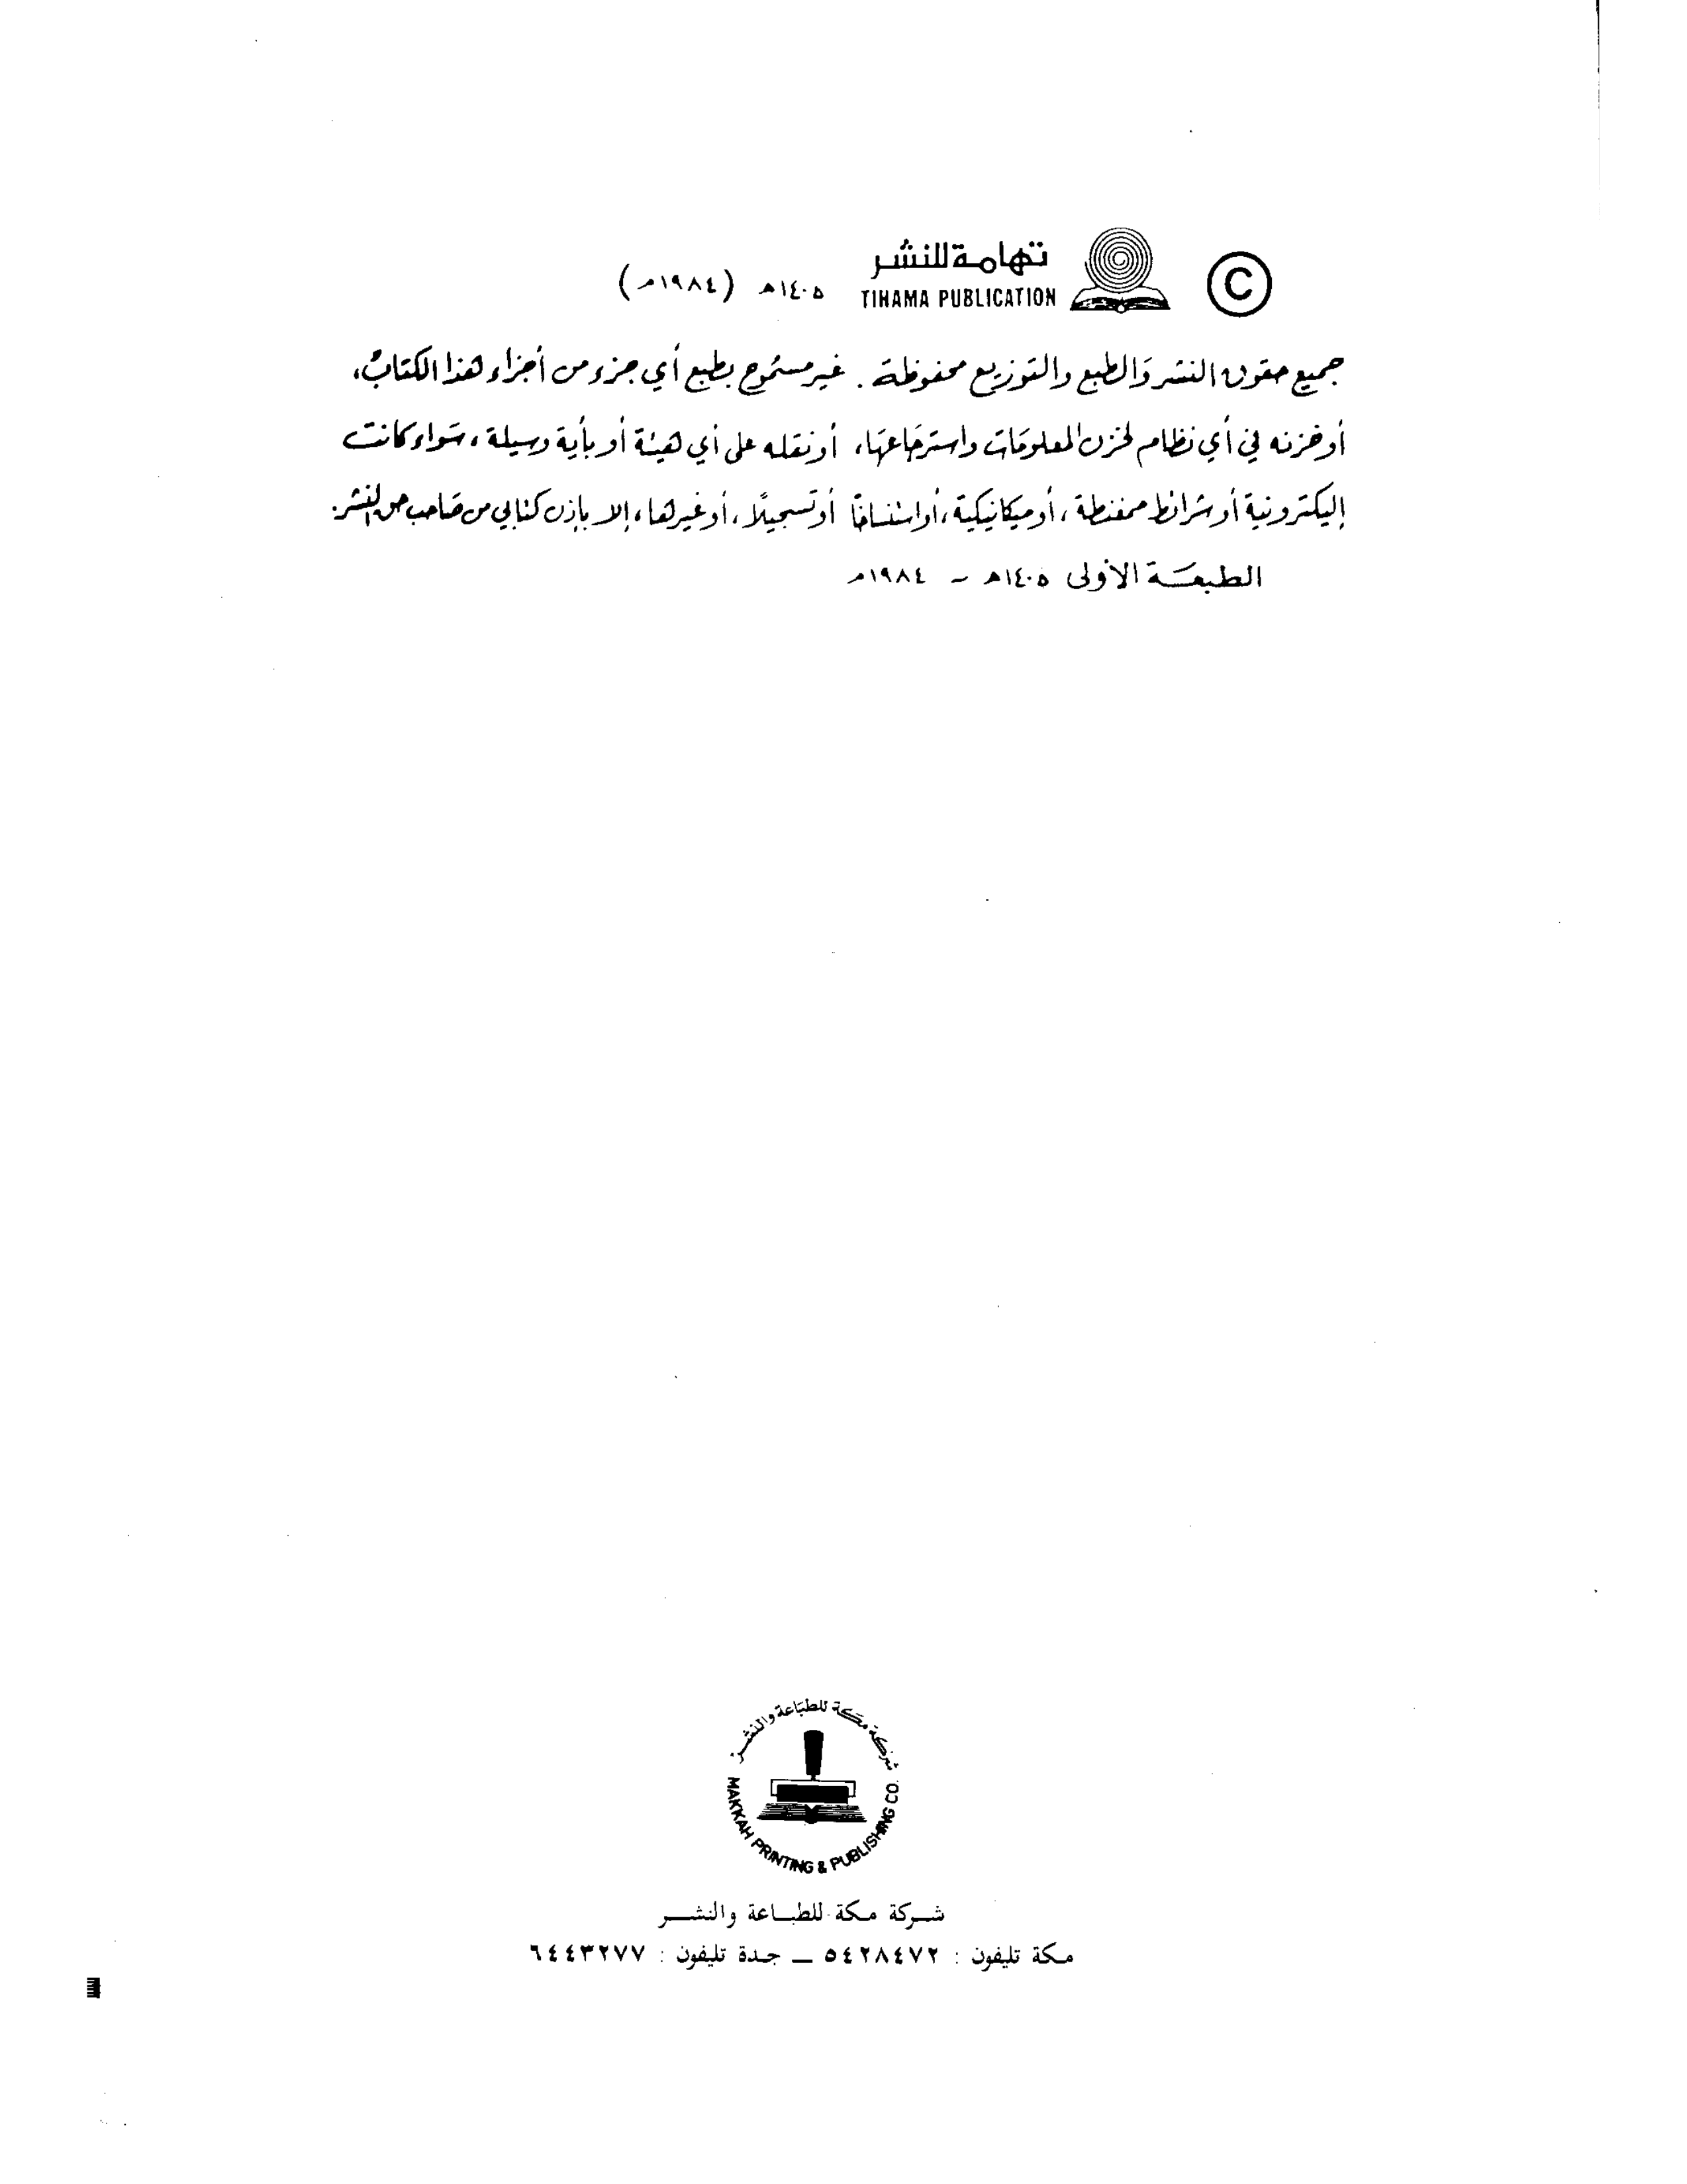 © تهامة للنشر ١٤٠٥هـ (١٩٨٤م)
TIHAMA PUBLICATION
جميع حقوق النشر والطبع والتوزيع محفوظة. غير مسموح بطبع أي جزء من أجزاء هذا الكتاب،
أو خزنه في أي نظام لخزن المعلومات واسترجاعها، أو نقله على أي هيئة أو بأية وسيلة، سواء كانت
إليكترونية أو شرائط ممغنطة، أو ميكانيكية، أو استنساخًا أو تسجيلًا، أو غيرها، إلا بإذن كتابي من صاحب حق النشر.
الطبعة الأولى ١٤٠٥هـ - ١٩٨٤م
شركة مكة للطباعة والنشر
MAKKAH PRINTING & PUBLISHING CO.
شركة مكة للطباعة والنشر
مكة تليفون : ٥٤٢٨٤٧٢ — جدة تليفون : ٦٤٤٣٢٧٧